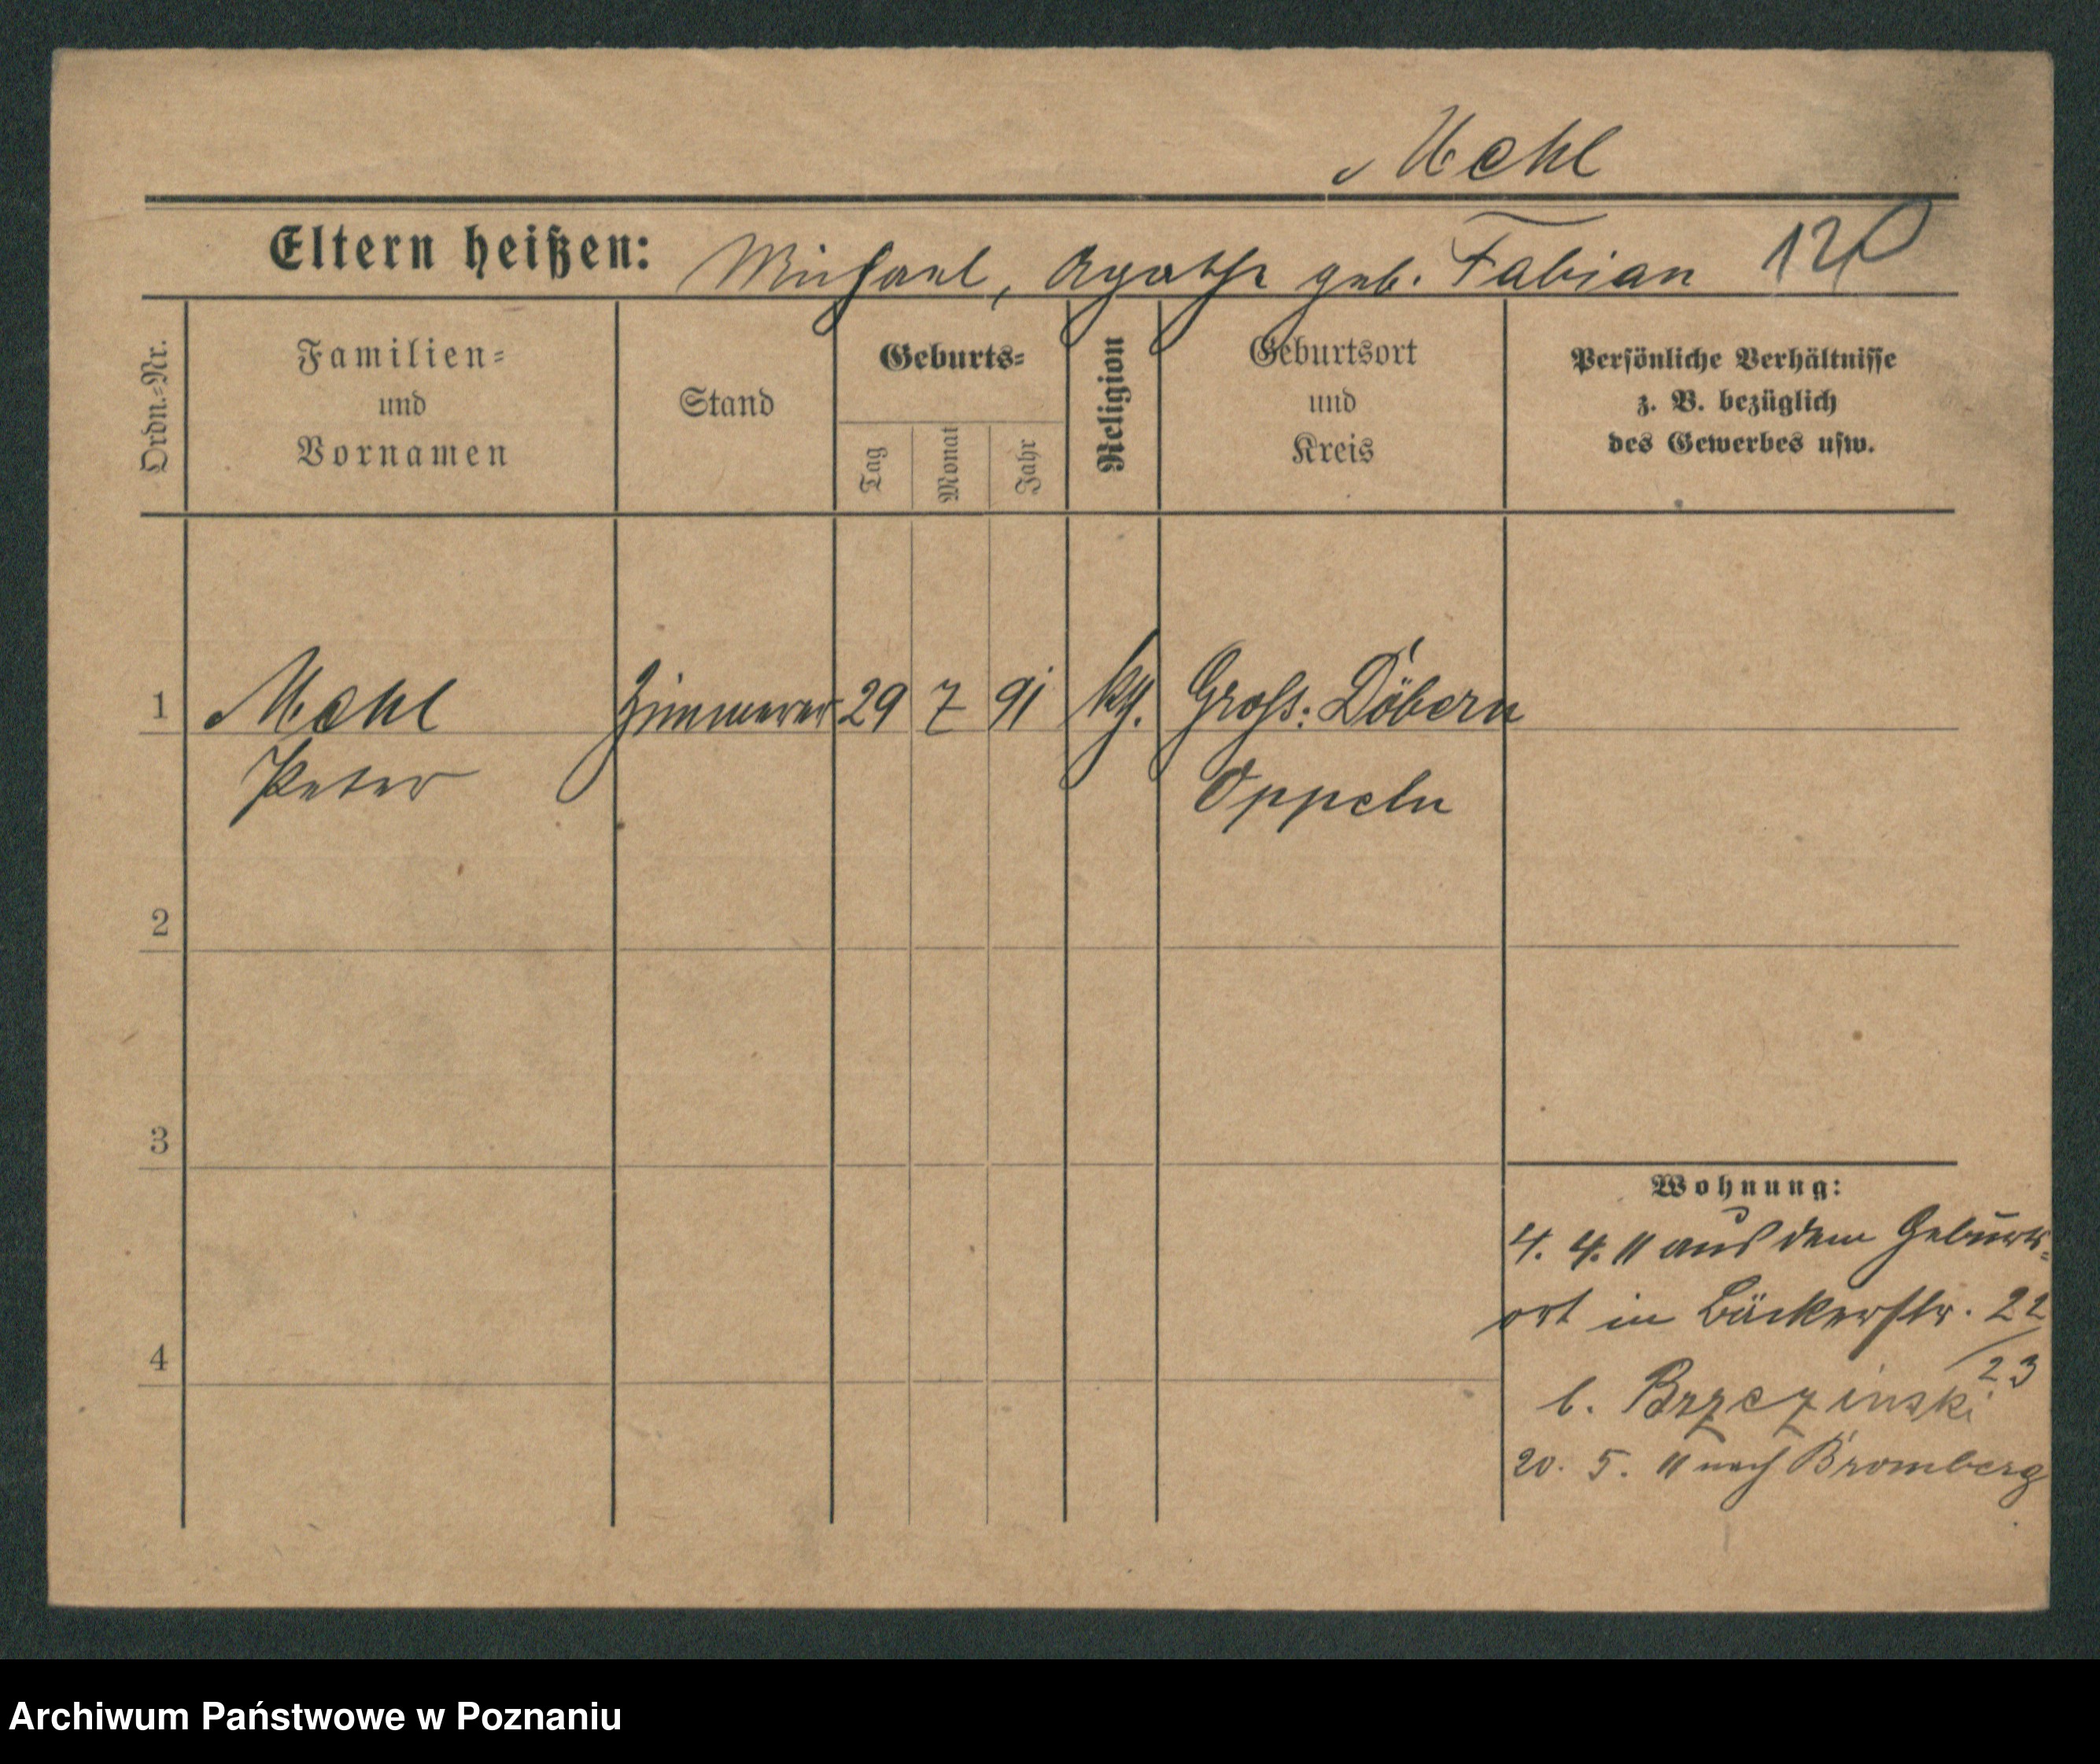 Mehl
Eltern heißen: Michael, Agathe geb. Fabian
Ordn.=Nr.
Familien=
und
Vornamen
Stand
Geburts=
Tag
Monat
Jahr
Religion
Geburtsort
und
Kreis
Persönliche Verhältnisse
z. B. bezüglich
des Gewerbes usw.
1 Mehl Zimmerer 29 7 91 kth. Gross: Döbern
Peter Oppeln
2
3
Wohnung:
4. 4. 11 aus dem Geburts=
ort in Bäckerstr. 22
/23
4
b. Brzezinski
20. 5. 11 nach Bromberg
Archiwum Państwowe w Poznaniu